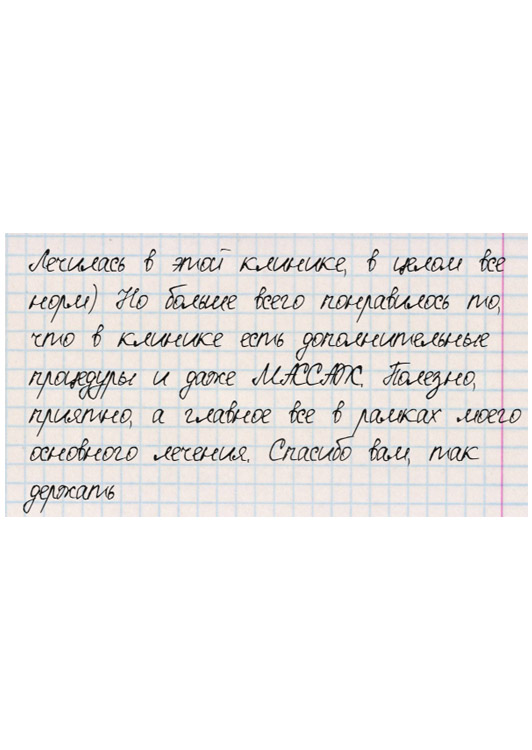 Лечилась в этой клинике, в целом все
норм) Но больше всего понравилось то,
что в клинике есть дополнительные
процедуры и даже МАССАЖ. Полезно,
приятно, а главное все в рамках моего
основного лечения. Спасибо вам, так
держать